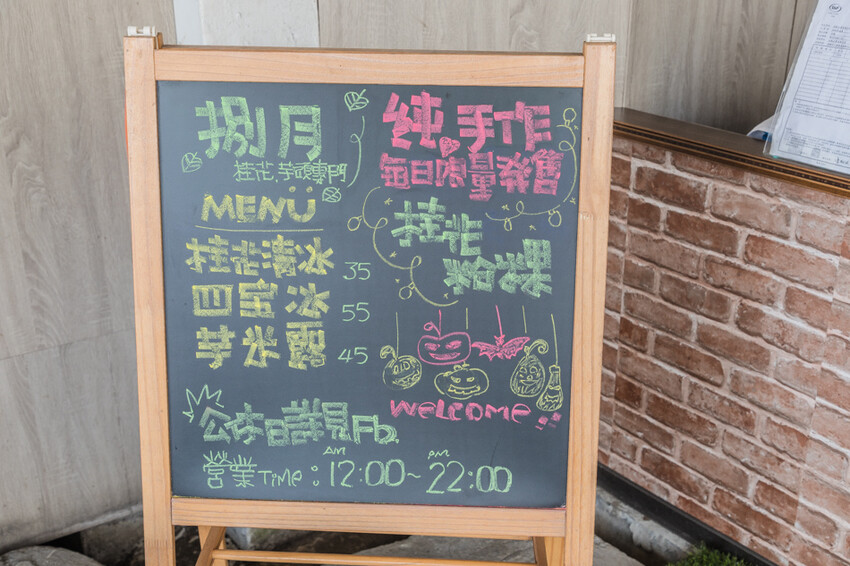 捌月
桂花、芋頭專門
MENÜ
桂花清冰 35
四宝冰 55
芋米露 45
純手作
每日限量發售
桂花
粉粿
WELCOME
公休日詳見Fb.
營業TiMe: AM 12:00~ PM 22:00